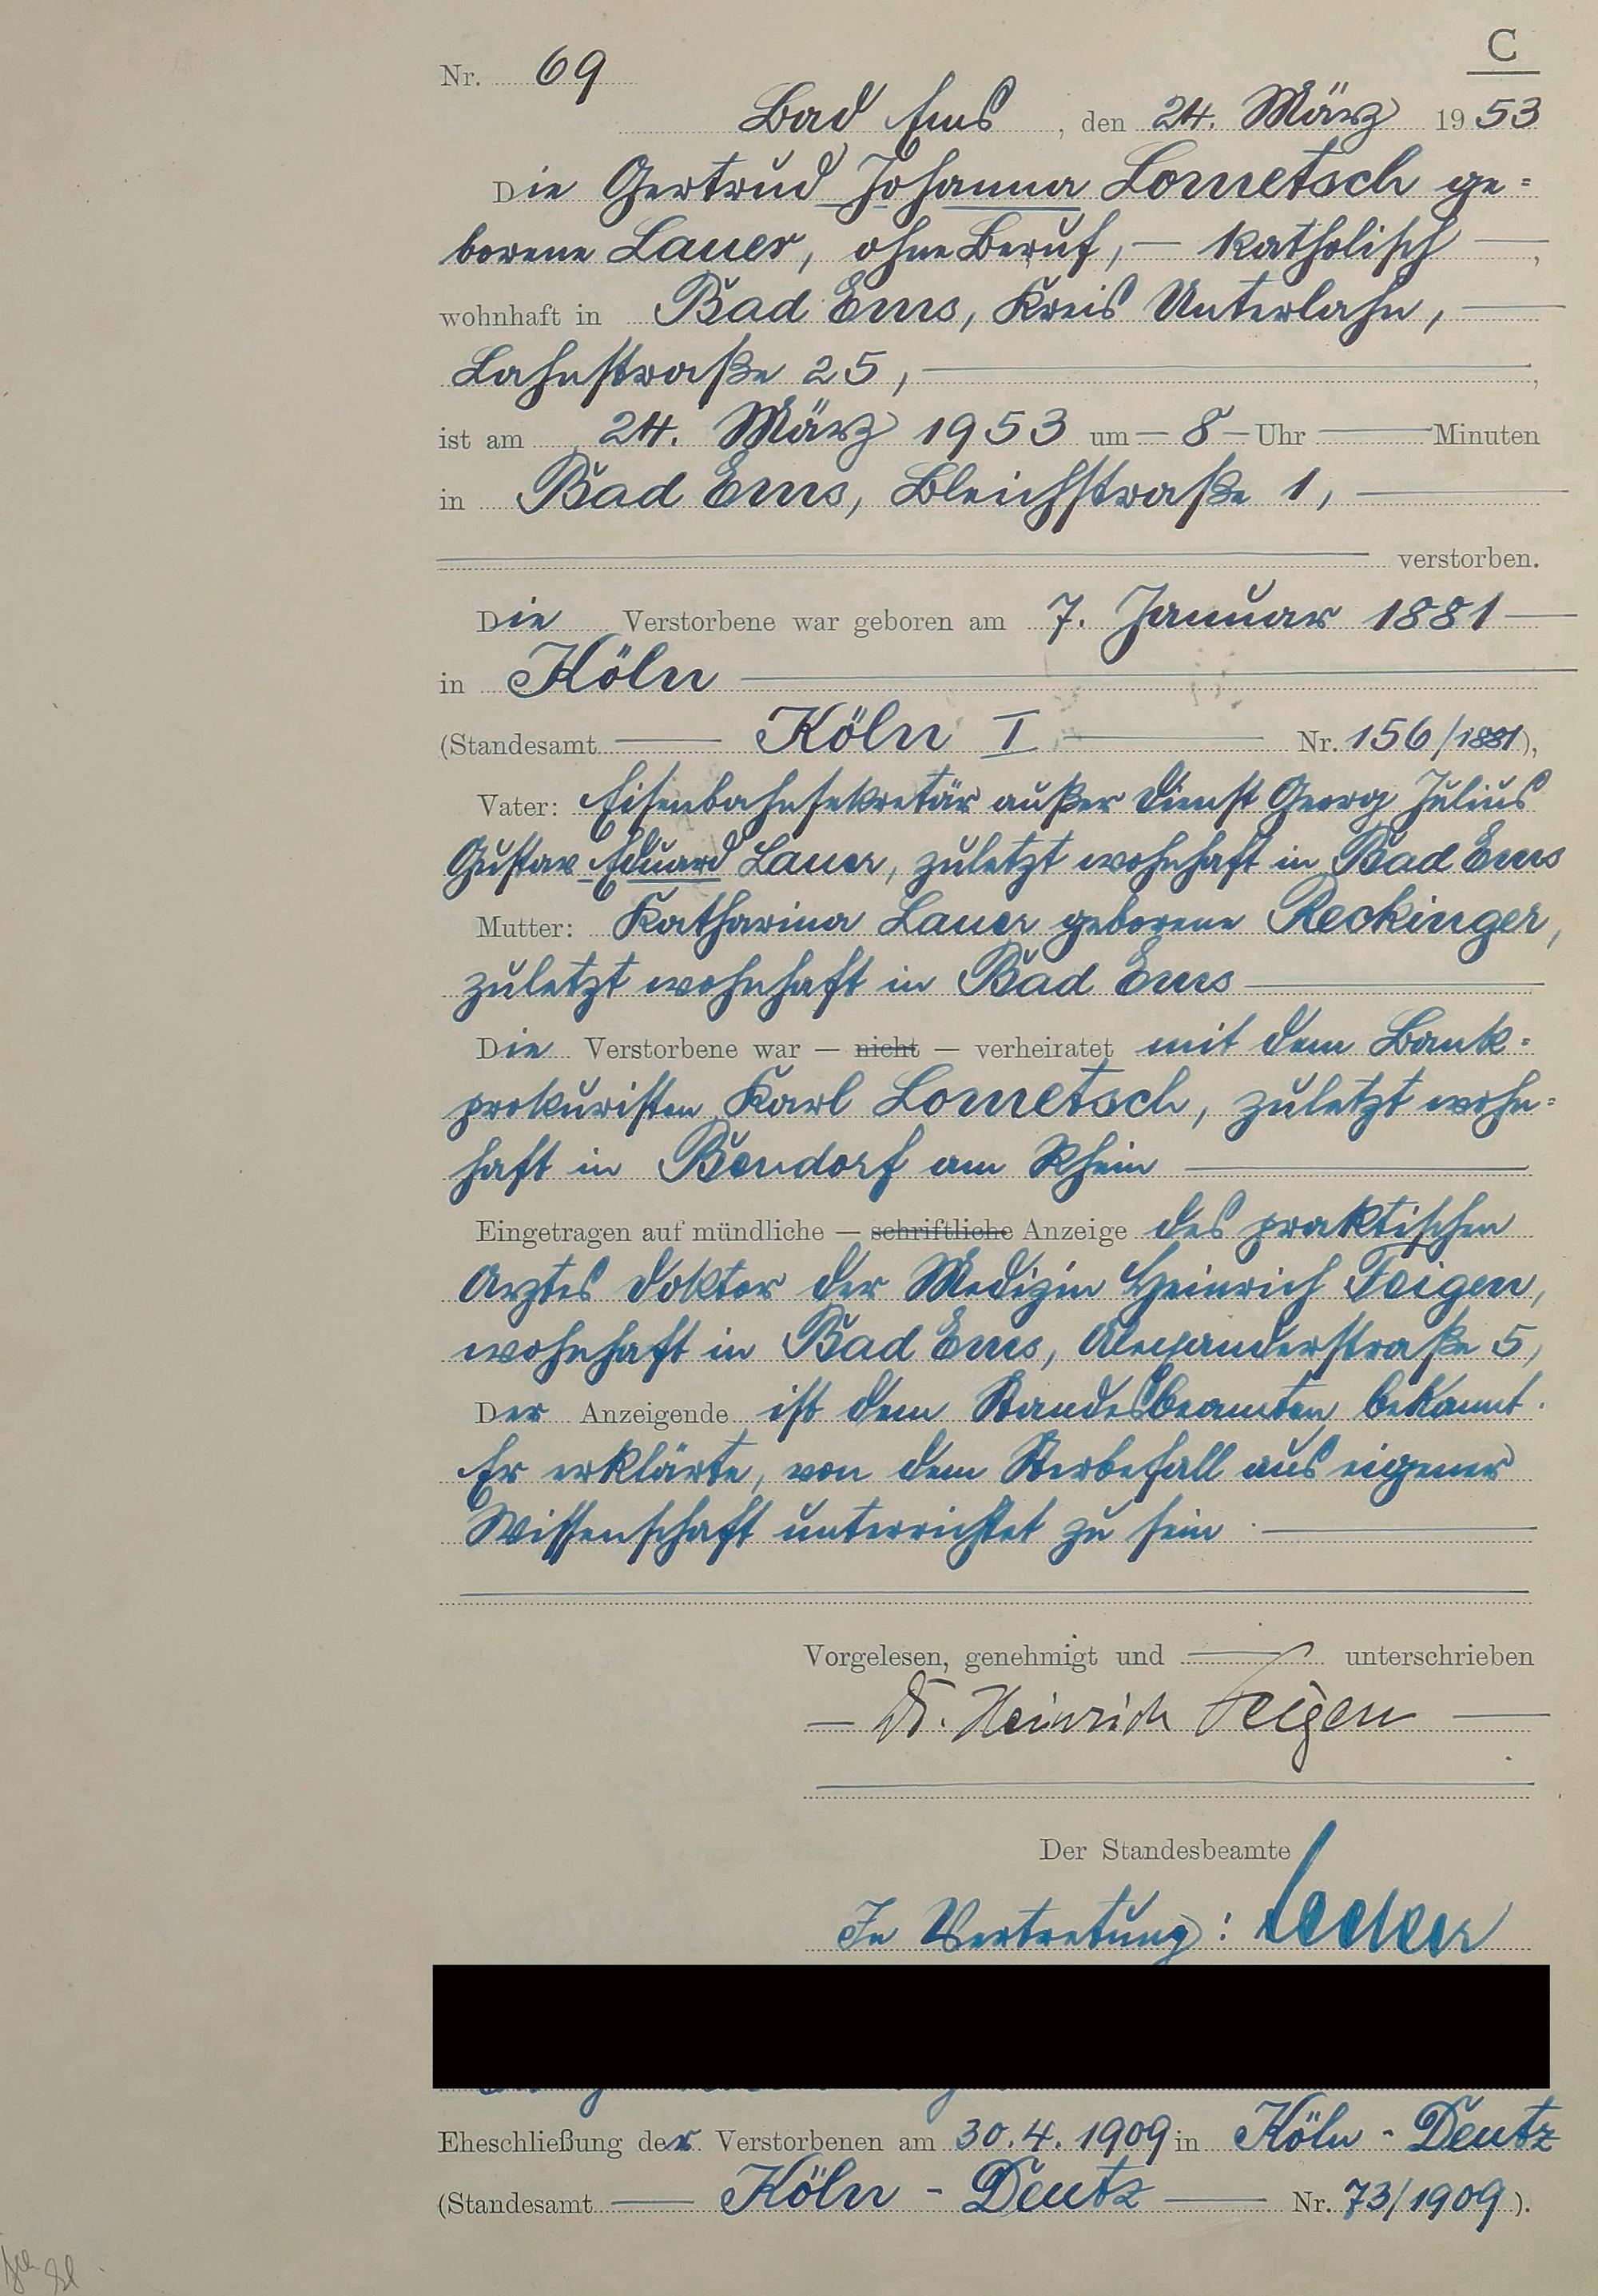 C
Nr. 69
Bad Ems, den 24. März 1953
Die Gertrud Johanna Lometsch ge=
borene Lauer, ohne Beruf, — katholisch —,
wohnhaft in Bad Ems, Kreis Unterlahn, —
Lahnstraße 25, —,
ist am 24. März 1953 um — 8 — Uhr — Minuten
in Bad Ems, Bleichstraße 1, —
— verstorben.
Die Verstorbene war geboren am 7. Januar 1881 —
in Köln —
(Standesamt — Köln I — Nr. 156/1881),
Vater: Eisenbahnsekretär außer Dienst Georg Julius
Gustav Eduard Lauer, zuletzt wohnhaft in Bad Ems
Mutter: Katharina Lauer geborene Reckinger,
zuletzt wohnhaft in Bad Ems —
Die Verstorbene war — nicht — verheiratet mit dem Bank=
prokuristen Karl Lometsch, zuletzt wohn=
haft in Bendorf am Rhein —
Eingetragen auf mündliche — schriftliche Anzeige des praktischen
Arztes Doktor der Medizin Heinrich Feigen,
wohnhaft in Bad Ems, Alexanderstraße 5,
Der Anzeigende ist dem Standesbeamten bekannt.
Er erklärte, von dem Sterbefall aus eigener
Wissenschaft unterrichtet zu sein. —
Vorgelesen, genehmigt und — unterschrieben
— Dr. Heinrich Feigen —
Der Standesbeamte
In Vertretung:
Eheschließung der Verstorbenen am 30.4.1909 in Köln - Deutz
(Standesamt — Köln - Deutz — Nr. 73/1909).